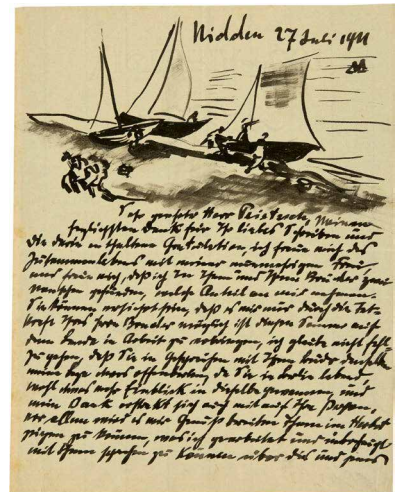 Nidden 27 Juli 1911
Sehr geehrter Herr Reiche, Meinen
herzlichsten Dank für Ihr liebes Schreiben und
die darin enthaltene Gratulation, ich freue mich des
Zusammenlebens mit meiner nunmehrigen Frau,
und freue mich, daß ich in Ihnen und Ihrem Bruder zwei
Menschen gefunden, welche Anteil an mir nehmen.
Sie können versichert sein, daß es mir nur durch die Tat-
kraft Ihres Herrn Bruders möglich ist diesen Sommer auf
dem Lande in Arbeit zu verbringen, ich glaube nicht fehl
zu gehen, daß Sie in Gesprächen mit Ihrem Bruder
meine Lage etwas offenbarten, da Sie in Berlin lebend
wohl etwas mehr Einblick in dieselbe gewannen, und
mein Dank erstreckt sich auch mit auf Ihre Person.
vor allem wird es mir Genuß bereiten Ihnen im Herbst
zeigen zu können, was ich gearbeitet und
mit Ihnen sprechen zu können über dies und jenes